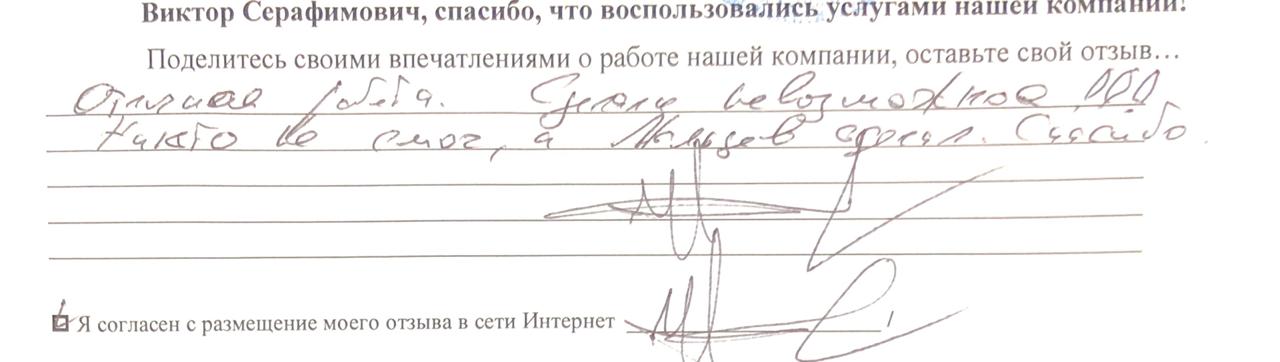 Виктор Серафимович, спасибо, что воспользовались услугами нашей компании!
Поделитесь своими впечатлениями о работе нашей компании, оставьте свой отзыв…
Отличная работа. Сделали невозможное !!!
Никто не смог, а Мальцев сделал. Спасибо
Я согласен с размещение моего отзыва в сети Интернет /